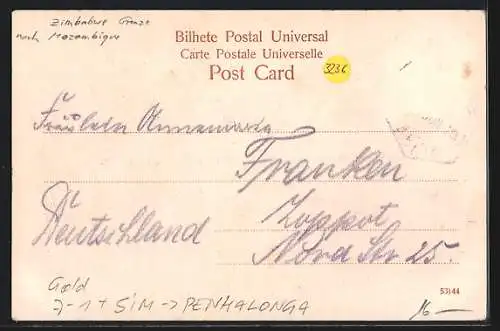 Zimbabwe Grenze
nach Mozambique
Bilhete Postal Universal
Carte Postale Universelle
Post Card
3236
Fräulein Annemarie
Franken
Zoppot
Deutschland
Nord Str 25.
Gold
7-1+ SIM -> PENHALONGA
53144
16-